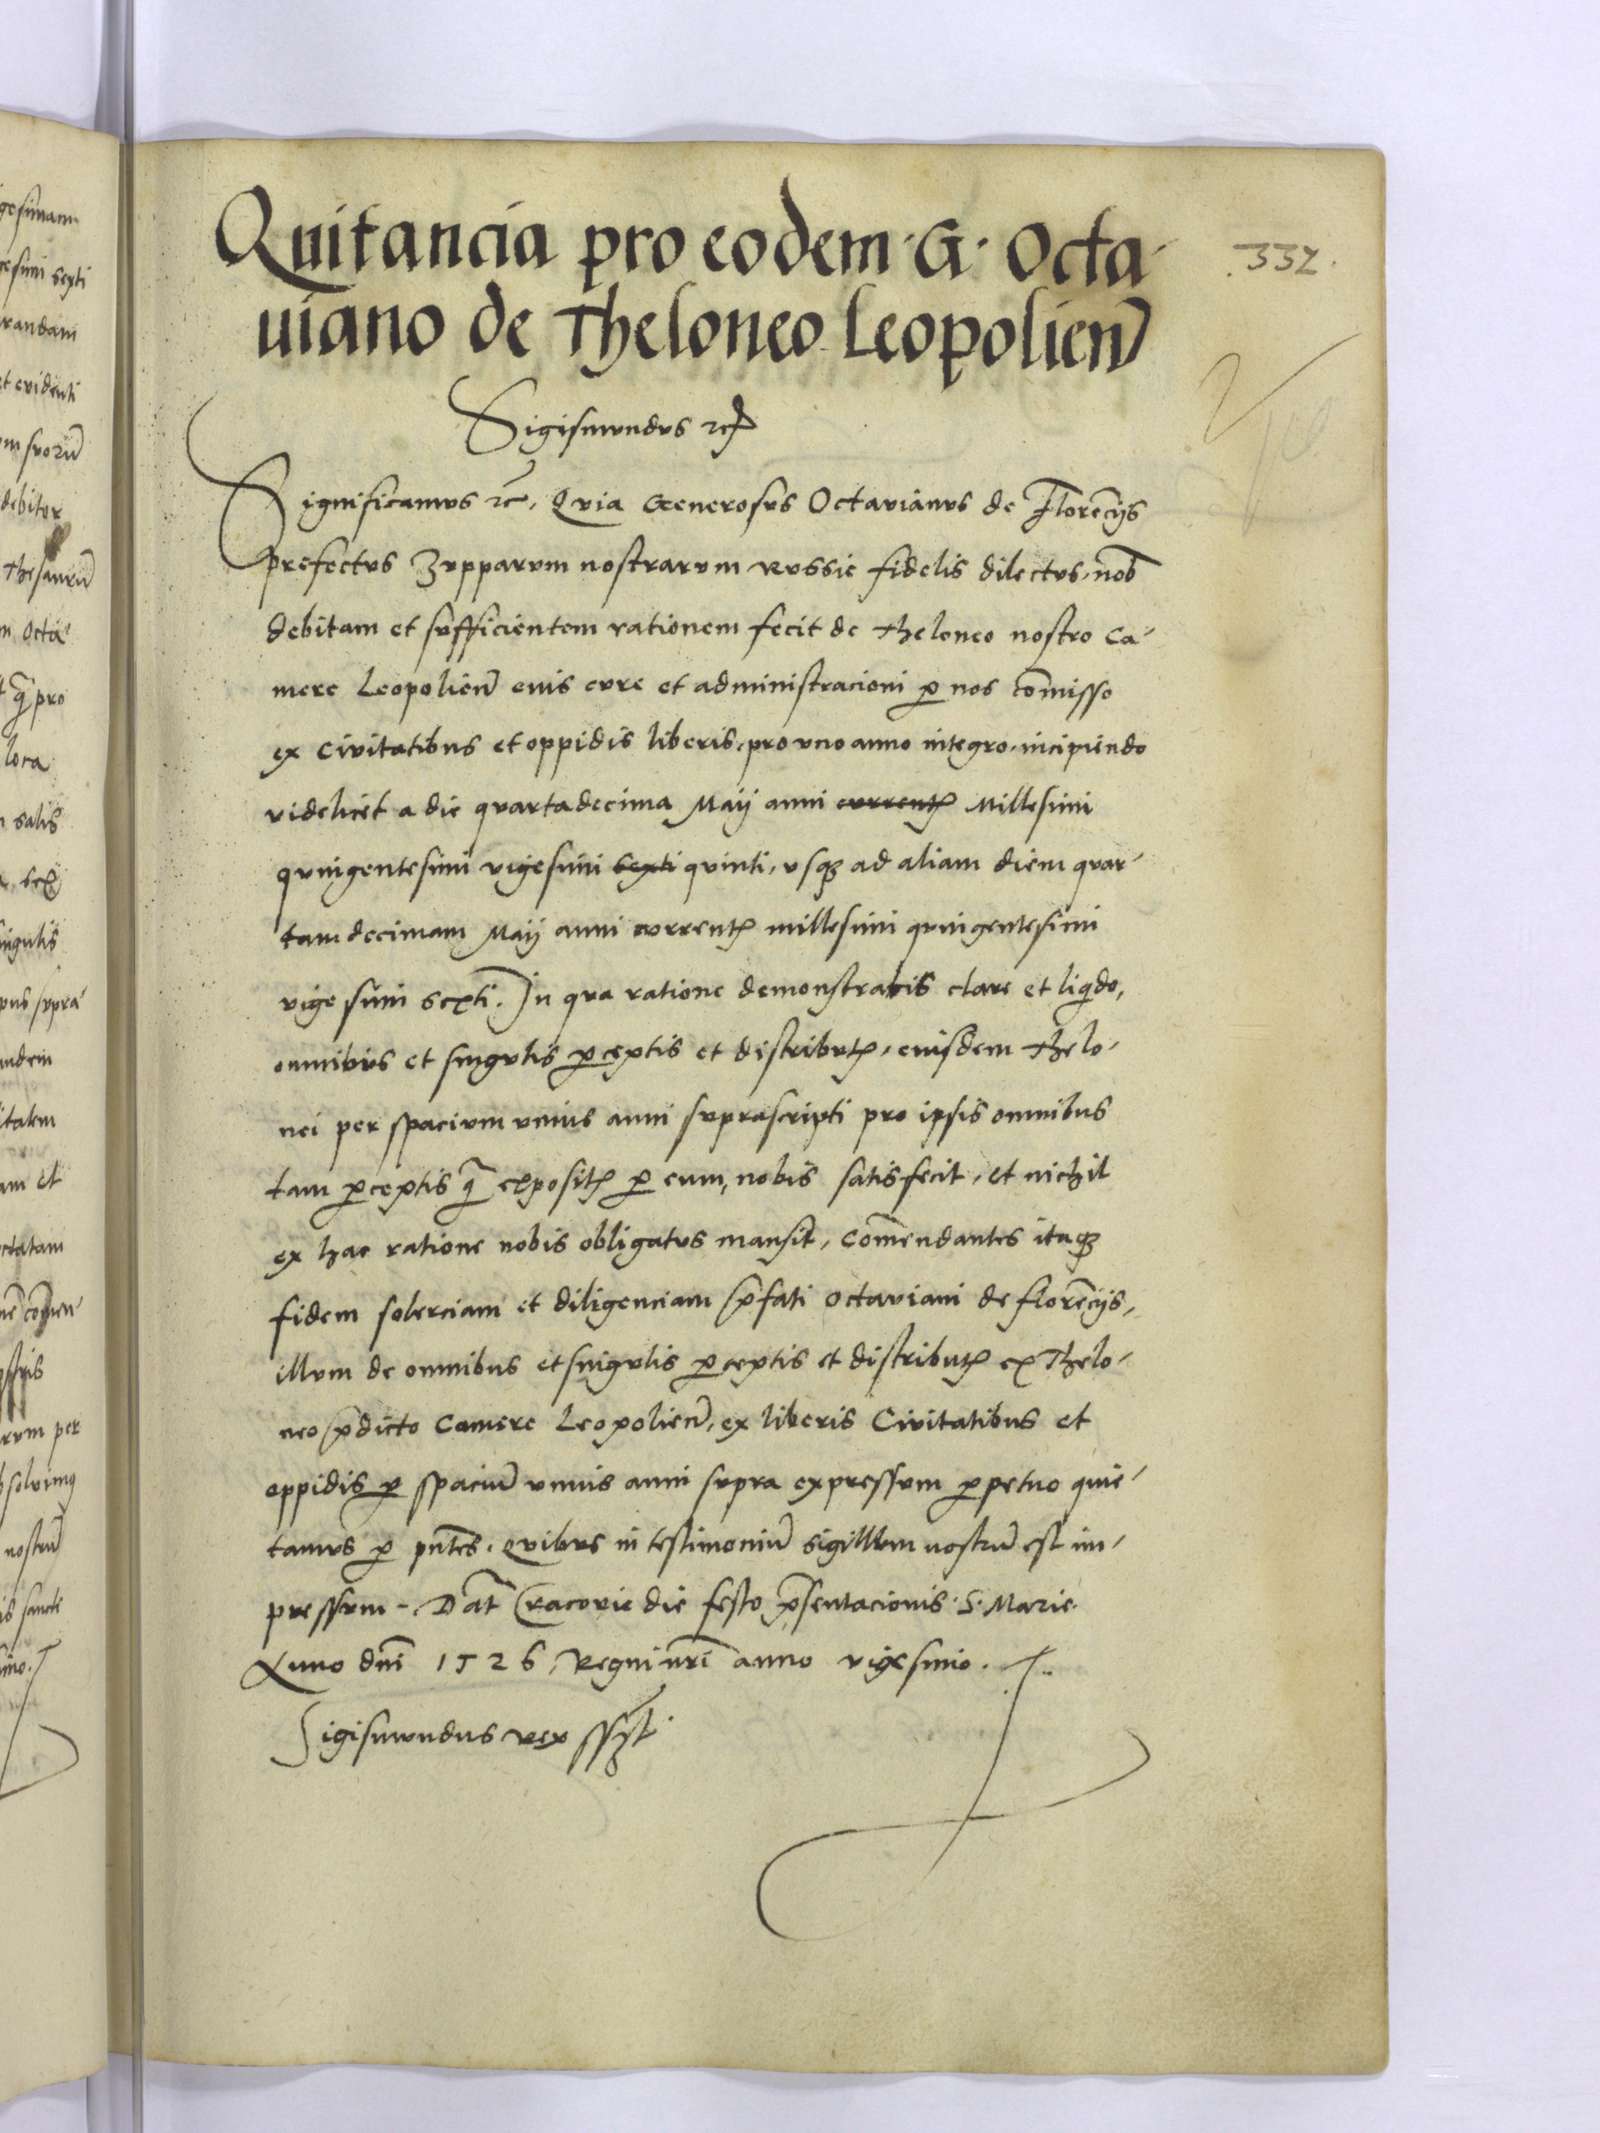 Quitancia pro eodem G. Octa-
uiano de Theloneo Leopolien
332
Sigismundus etc
Significamus etc, Quia Generosus Octavianus de Florēcijs
prefectus Zupparum nostrarum Russie fidelis dilectus nob
debitam et sufficientem rationem fecit de theloneo nostro Ca-
mere Leopolien eius cure et administracioni p nos comisso
ex Civitatibus et oppidis liberis, pro uno anno integro, incipiendo
videlicet a die quartadecima Maij anni currentis Millesimi
quingentesimi vigesimi sexti quinti, usq ad aliam diem quar-
tamdecimam Maij anni currentis millesimi quingentesimi
vigesimi sexti. In qua ratione demonstratis clare et liqido,
omnibus et singulis pceptis et distributis, eiusdem thelo-
nei per spacium unius anni suprascripti pro ipsis omnibus
tam pceptis q̄ expositis p eum, nobis satisfecit, et nichil
ex hac ratione nobis obligatus mansit, Comendantes itaq
fidem solerciam et diligenciam pfati Octaviani de florēcijs,
illum de omnibus et singulis pceptis et distributis ex Thelo-
neo pdicto Camere Leopolien, ex liberis Civitatibus et
oppidis p spaciū unius anni supra expressum ppetuo quie-
tamus p pntes. Quibus in testimoniū sigillum nostrū est im-
pressum. Dat Cracovie die festo psentacionis S. Marie.
Anno dni 1526, Regni nri anno vigesimo.
Sigismundus rex sst